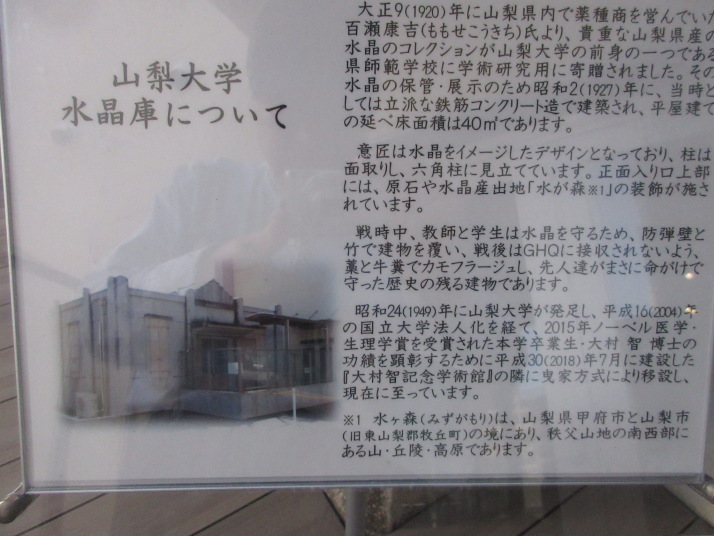 山梨大学
水晶庫について
大正9(1920)年に山梨県内で薬種商を営んでいた
百瀬康吉(ももせこうきち)氏より、貴重な山梨県産の
水晶のコレクションが山梨大学の前身の一つである
県師範学校に学術研究用に寄贈されました。その
水晶の保管・展示のため昭和2(1927)年に、当時と
しては立派な鉄筋コンクリート造で建築され、平屋建て
の延べ床面積は40㎡であります。
意匠は水晶をイメージしたデザインとなっており、柱は
面取りし、六角柱に見立てています。正面入り口上部
には、原石や水晶産出地「水が森※1」の装飾が施さ
れています。
戦時中、教師と学生は水晶を守るため、防弾壁と
竹で建物を覆い、戦後はGHQに接収されないよう、
藁と牛糞でカモフラージュし、先人達がまさに命がけで
守った歴史の残る建物であります。
昭和24(1949)年に山梨大学が発足し、平成16(2004)年
の国立大学法人化を経て、2015年ノーベル医学・
生理学賞を受賞された本学卒業生・大村 智 博士の
功績を顕彰するために平成30(2018)年7月に建設した
『大村智記念学術館』の隣に曳家方式により移設し、
現在に至っています。
※1 水ヶ森(みずがもり)は、山梨県甲府市と山梨市
(旧東山梨郡牧丘町)の境にあり、秩父山地の南西部に
ある山・丘陵・高原であります。